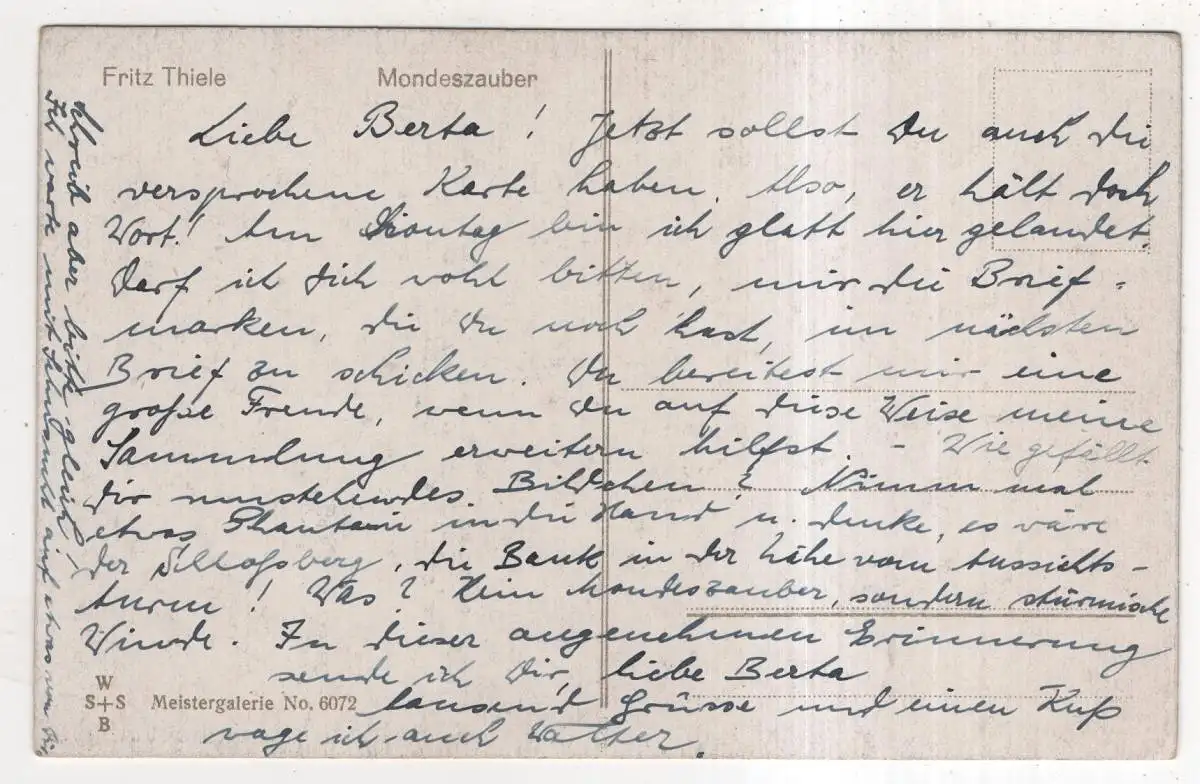 Fritz Thiele
Mondeszauber
Liebe Berta! Jetzt sollst Du auch die
versprochene Karte haben. Also, er hält doch
Wort! Am Sonntag bin ich glatt hier gelandet.
Darf ich Dich wohl bitten, mir die Brief-
marken, die Du noch hast, im nächsten
Brief zu schicken. Du bereitest mir eine
große Freude, wenn Du auf diese Weise meine
Sammlung erweitern hilfst. - Wie gefällt
Dir umstehendes Bildchen? Nimm mal
etwas Phantasie in die Hand u. denke, es wäre
der Schloßberg, die Bank in der Nähe vom Aussichts-
turm! Was? Kein Mondeszauber, sondern stürmische
Winde. In dieser angenehmen Erinnerung
sende ich Dir, liebe Berta
tausend Grüsse und einen Kuß
wage ich auch Walter.
W
S+S
B
Meistergalerie No. 6072
Schreib aber bitte gleich!
Ich warte mit Sehnsucht auf etwas von Dir